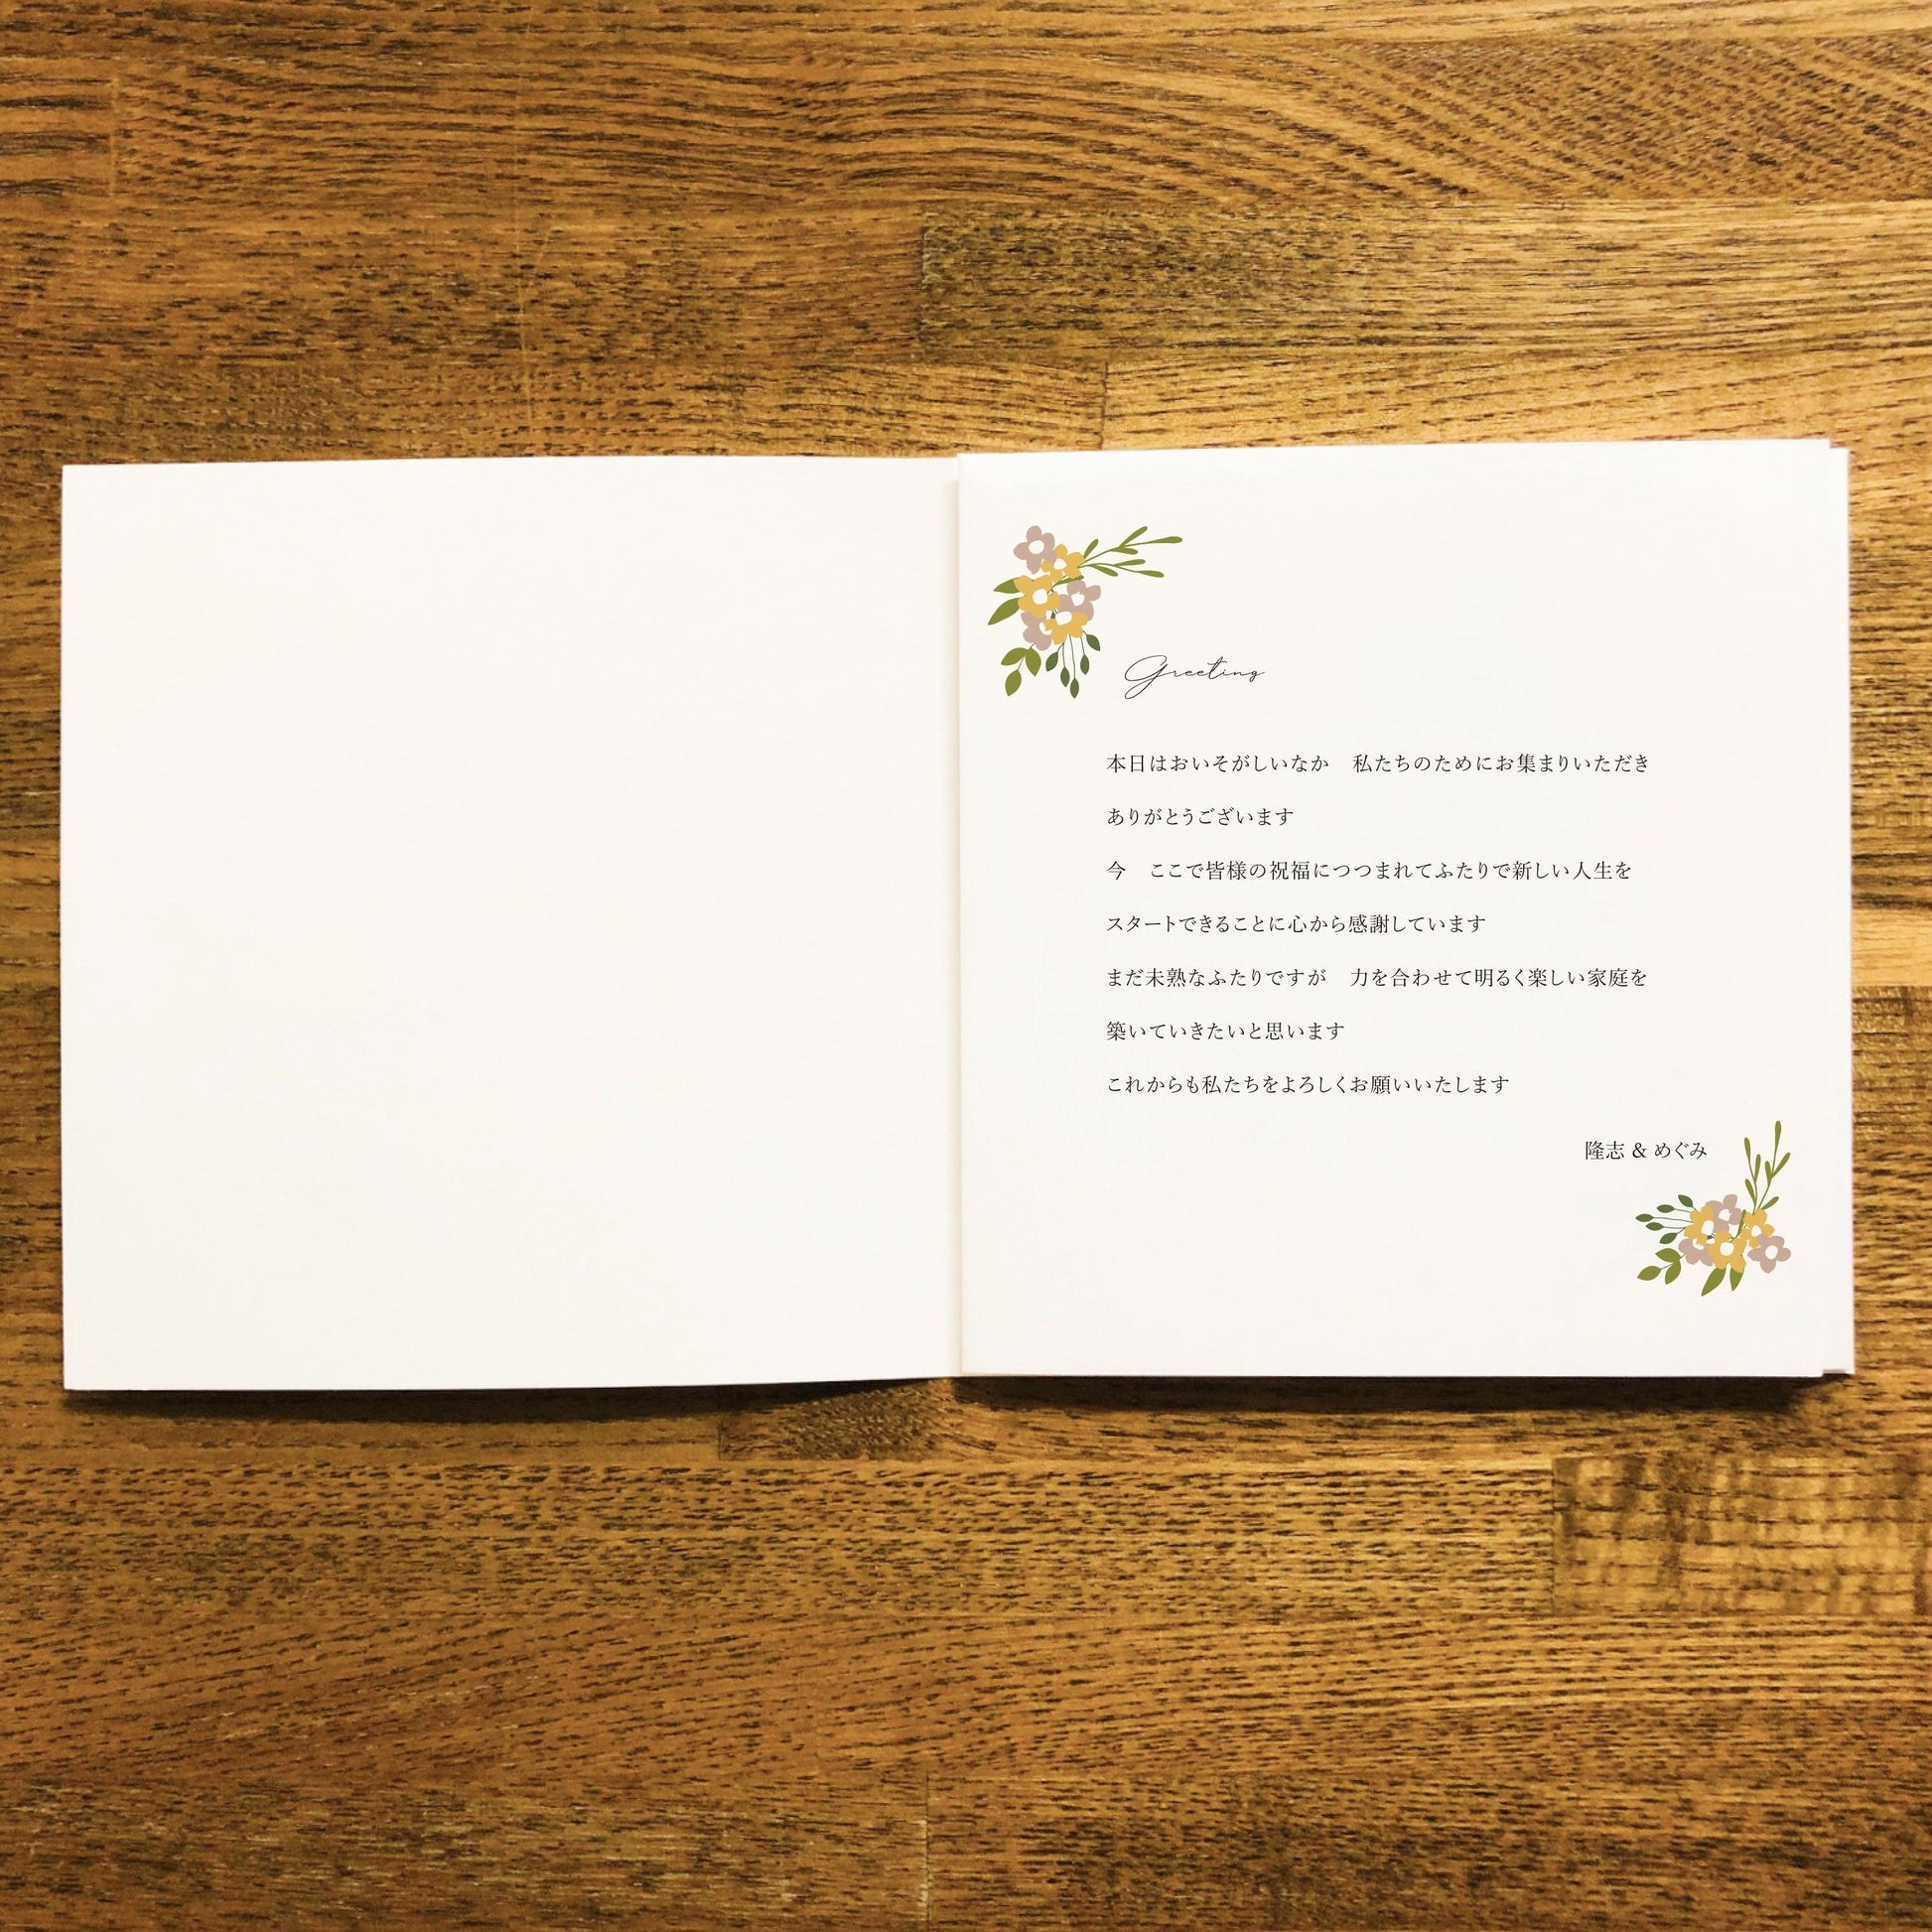 Greeting
本日はおいそがしいなか　私たちのためにお集まりいただき
ありがとうございます
今　ここで皆様の祝福につつまれてふたりで新しい人生を
スタートできることに心から感謝しています
まだ未熟なふたりですが　力を合わせて明るく楽しい家庭を
築いていきたいと思います
これからも私たちをよろしくお願いいたします
隆志 & めぐみ